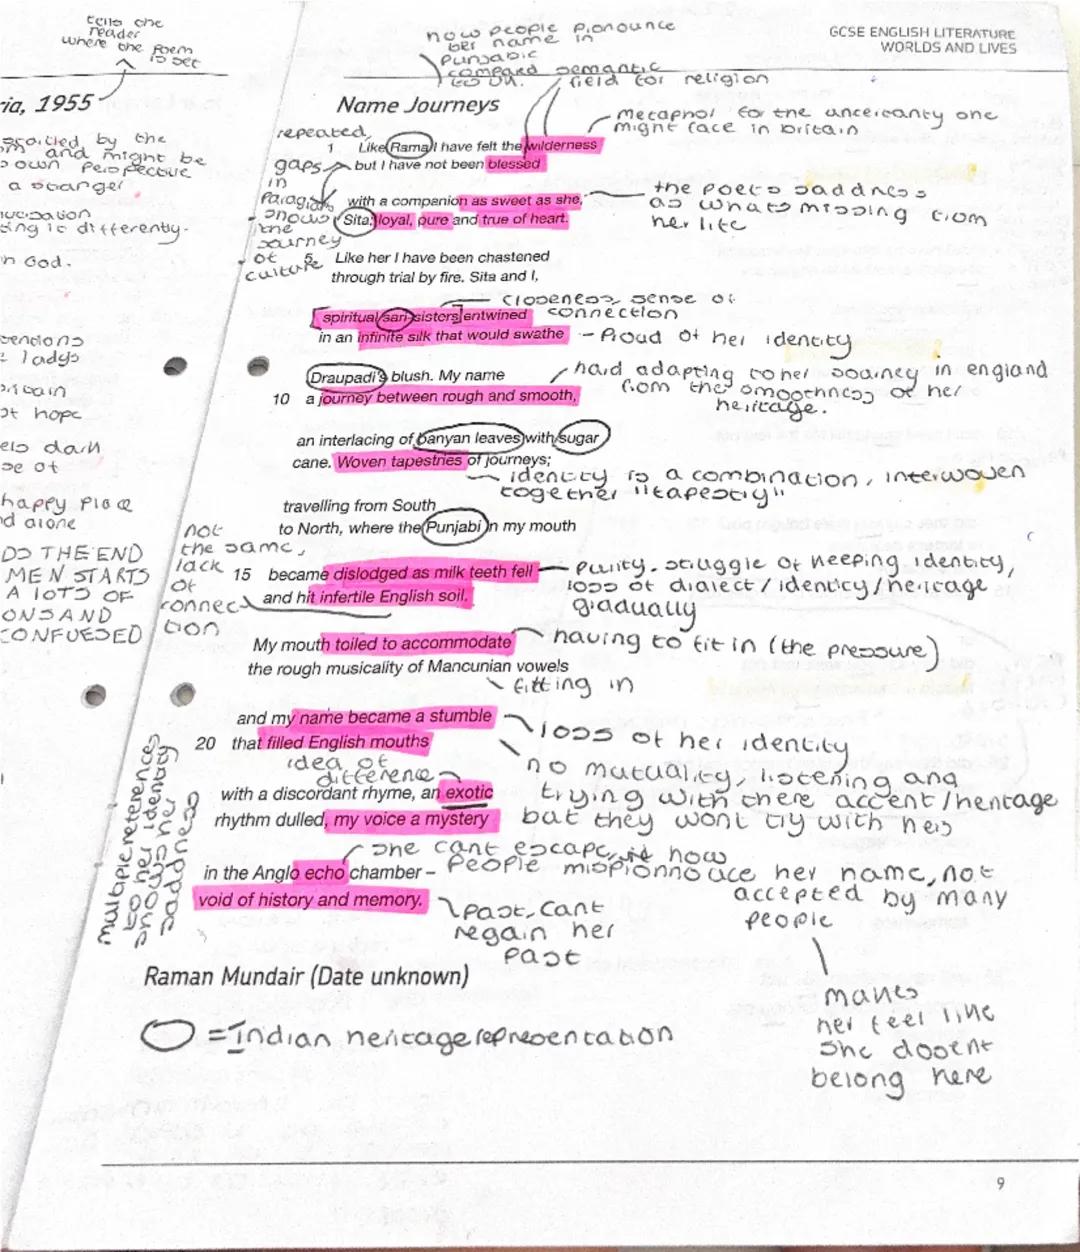 tells the
reader
where the poem
is set
ria, 1955
spoiled by the
and might be
own perspective
a stranger
ing it differently.
n God.
lady's
Britain
of hope
els dark
se of
happy place
nd alone
DS THE END
MEN STARTS
A LOTS OF
ONS AND
CONFUESED
GCSE ENGLISH LITERATURE
WORLDS AND LIVES
how people pronounce
her name in
Punjabic
compared
to UK.
semantic
field for religion
Name Journeys
metaphor for the uncertanty one
might face in britain
repeated
gaps
in
Parag
shows
the
journey
of
culture
1 Like Rama I have felt the wilderness
but I have not been blessed
with a companion as sweet as she,
Sita; loyal, pure and true of heart.
the poets saddness
as whats missing from
her life
5 Like her I have been chastened
through trial by fire. Sita and I,
closeness, sense of
connection
spiritual sari-sisters entwined
in an infinite silk that would swathe
- Proud of her identity
Draupadi's blush. My name
10 a journey between rough and smooth,
hard adapting to her journey in england
from the smoothness of her
heritage.
an interlacing of banyan leaves with sugar
cane. Woven tapestries of journeys;
identity is a combination, interwoven
together "tapestry"
travelling from South
to North, where the Punjabi in my mouth
not
the same,
lack
of
connec
tion
15 became dislodged as milk teeth fell
and hit infertile English soil.
Purity. struggle of keeping identity,
loss of dialect / identity / heritage
gradually
My mouth toiled to accommodate
the rough musicality of Mancunian vowels
having to fit in (the pressure)
fitting in
and my name became a stumble
20 that filled English mouths
loss of her identity
idea of
difference
with a discordant rhyme, an exotic
rhythm dulled, my voice a mystery
no mutuality, listening and
trying with there accent/heritage
but they wont try with hers
she cant escape, how
people mispronnouce her name, not
accepted by many
people
in the Anglo echo chamber –
void of history and memory.
Past, Cant
regain her
past
makes
her feel like
she dosent
belong here
multiple references
to her identity
shows her
saddness
Raman Mundair (Date unknown)
= Indian heritage representation
9